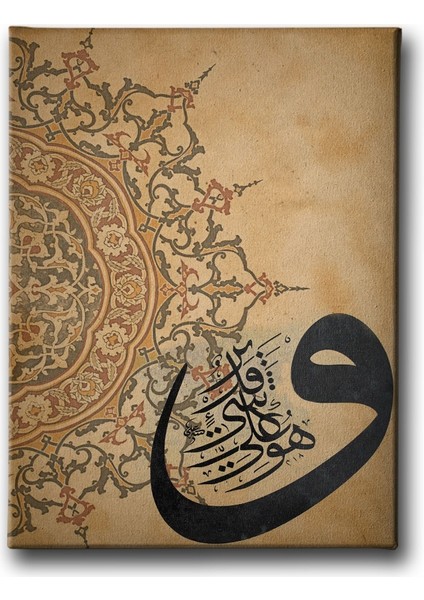 و
هو على كل شيء قدير